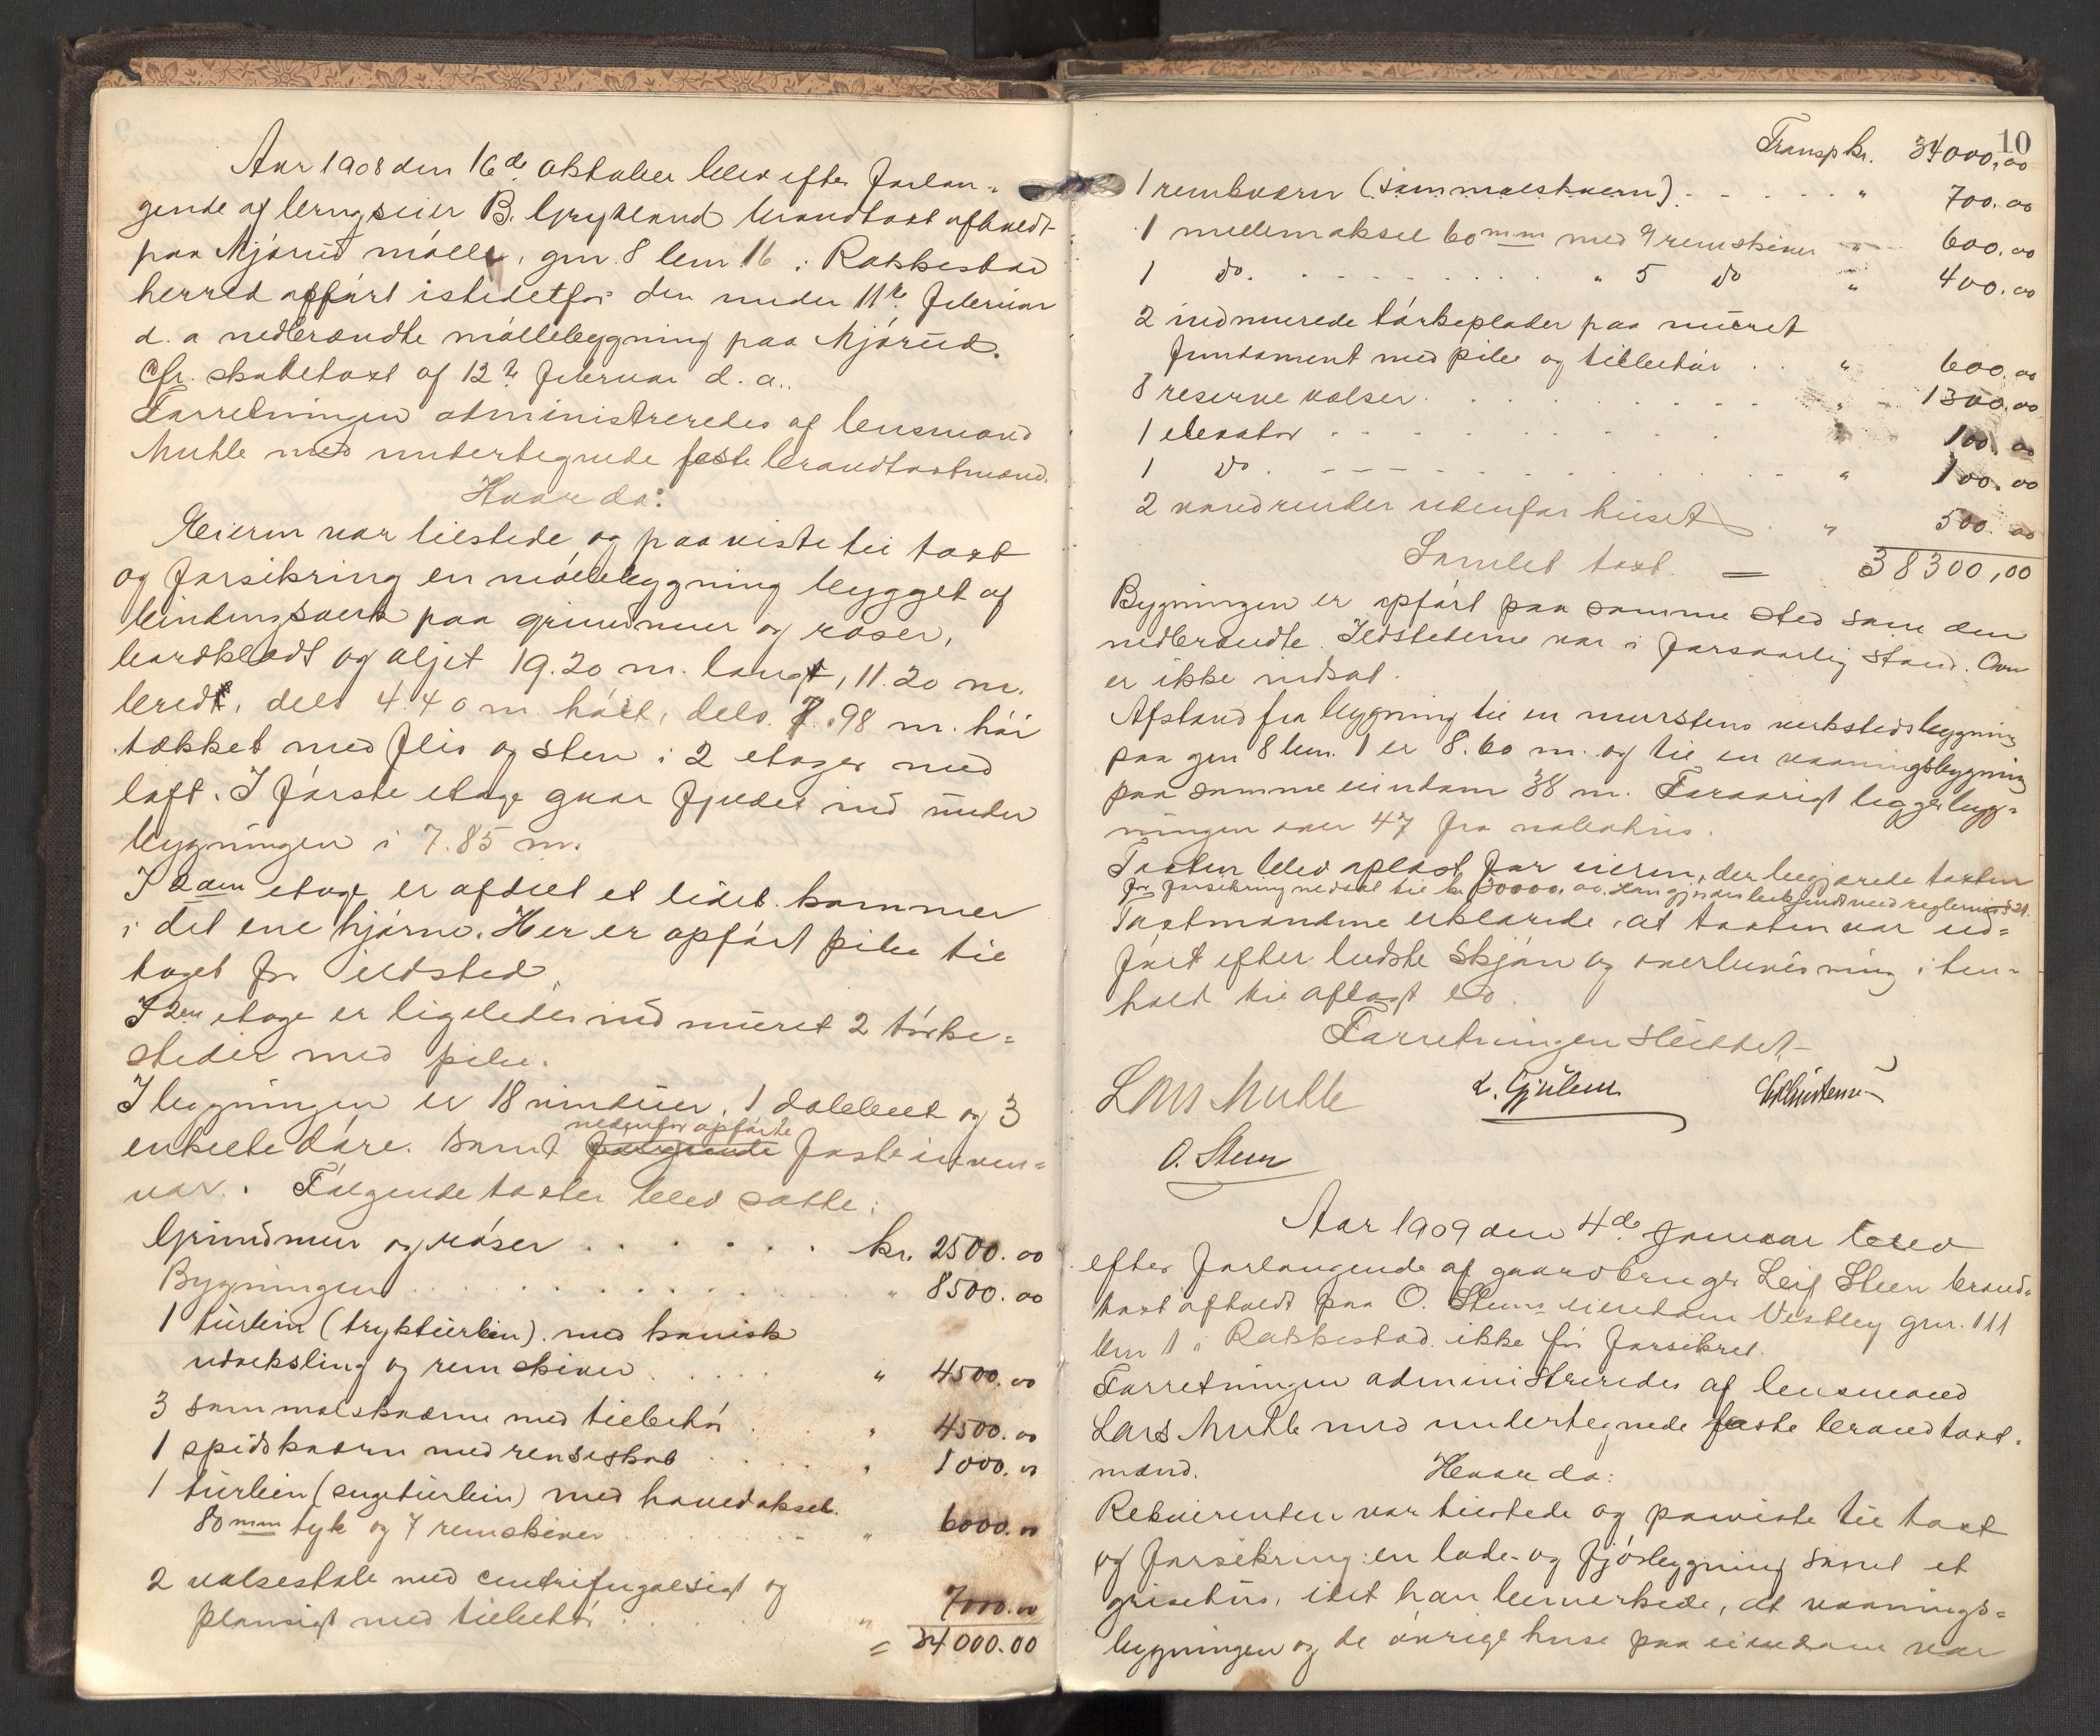 Aar 1908 den 16de oktober blev efter forlan-
gende af brugseier B. Grydeland brandtaxt afholdt
paa Mjørud mølle, gnr. 8 bnr. 16 i Rakkestad
herred opført istedetfor den under 11te februar
d. a nedbrændte møllebygning paa Mjørud.
Cfr. skadetaxt af 12te februar d. a..
Forretningen administreredes af lensmand
Muhle med undertegnede faste brandtaxtmænd.
Hvorda:
Eieren var tilstede og paaviste til taxt
og forsikring en møllebygning bygget af
bindingsverk paa grundmur og røser,
bordklædt og oljet 19.20 m. langt, 11.20 m.
bredt, dels 4.40 m høit, dels 7.98 m. høi
tækket med flis og sten i 2 etager med
loft. I første etage gaar fjeldet ind under
bygningen i 7.85 m.
I 2den etage er afdelt et lidet kammer
i det ene hjørne. Her er opført pibe til
taget for ildsted.
I 2den etage er ligeledes ind muret 2 tørke-
steder med pibe.
I bygningen er 18 vinduer, 1 dobbelt og 3
nedenfor opførte
enkelte døre. Samt følgende faste inven-
var. Følgende taxter blev satte:
Grundmur og røser . . . . . . kr. 2500.00
Bygningen . . . . . . . " 8500.00
1 turbin (trykturbin) med konisk
udveksling og remskiver . . . . " 4500.00
3 sammalskværne med tilbehør . . " 4500.00
1 spidskværn med renseskab . . . " 1000.00
1 turbin (sugeturbin) med hovedaksel
80 mm tyk og 7 remskiver . . . " 6000.00
2 valsestole med centrifugalsigt og
plansigt med tilbehør . . . " 7000.00
= 34000.00
10
Transp kr. 34000,00
1 rembværn (sammalskværn) - - - - " 700.00
1 mellemaksel 60 mm med 9 remskiver " 600.00
1 do. - - - - - " 5 do " 400.00
2 indmurede tørkeplader paa muret
fundament med pibe og tilbehør . . " 600.00
8 reserve valser . . . . . . " 1300.00
1 elevator - - - - - " 100.00
1 do. - - - - - " 100.00
2 vandrender udenfor huset . " 500.00
Samlet taxt = 38300,00
Bygningen er opført paa samme sted som den
nedbrændte. Ildstederne var i forsvarlig stand. Ovn
er ikke indsat.
Afstand fra bygning til en murstens verkstedsbygning
paa gnr 8 bnr. 1 er 8.60 m. og til en vaaningsbygning
paa samme eiendom 38 m. Forøvrigt ligger byg-
ningen over 47 fra nabohus.
Taxten blev oplæst for eieren, der begjærede taxten
for forsikring nedsat til kr. 30000.00. Han gjordes bekjendt med reglernes § 21.
Taxtmændene erklærede, at taxten var ud-
ført efter bedste skjøn og overbevisning i hen-
hold til aflagt ed.
Forretningen sluttet
Lars Muhle L. Gjulem Chr Christensen
O. Steen
Aar 1909 den 4de januar blev
efter forlangende af gaardbruger Leif Steen brand-
taxt afholdt paa O. Steens eiendom Vestby gnr. 111
bnr 1 i Rakkestad. ikke før forsikret.
Forretningen administreredes af lensmand
Lars Muhle med undertegnede faste brandtaxt-
mænd. Hvorda:
Rekvirenten var tilstede og paaviste til taxt
og forsikring: en lade- og fjøsbygning samt et
grisehus, idet han bemerkede, at vaanings-
bygningen og de øvrige huse paa eiendom var